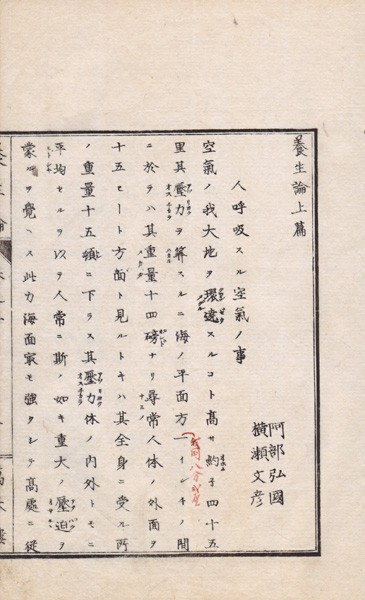 養生論上篇
阿部弘國
横瀬文彦
人呼吸スル空氣ノ事
空氣ノ我大地ヲ環遶スルコト高サ約そ四十五
里其壓力ヲ算スルニ海ノ平面方一インキノ間
ニ於テハ其重量十四磅ナリ尋常人体ノ外面ヲ
十五セート方面ト見ルトキハ其全身ニ受ル所
ノ重量十五頓ニ下ラス其壓力体ノ内外トモニ
平均セルヲ以テ人常ニ斯ノ如キ重大ノ壓迫ヲ
蒙ルヲ覺ヘス此力海面最モ強クシテ高處ニ従